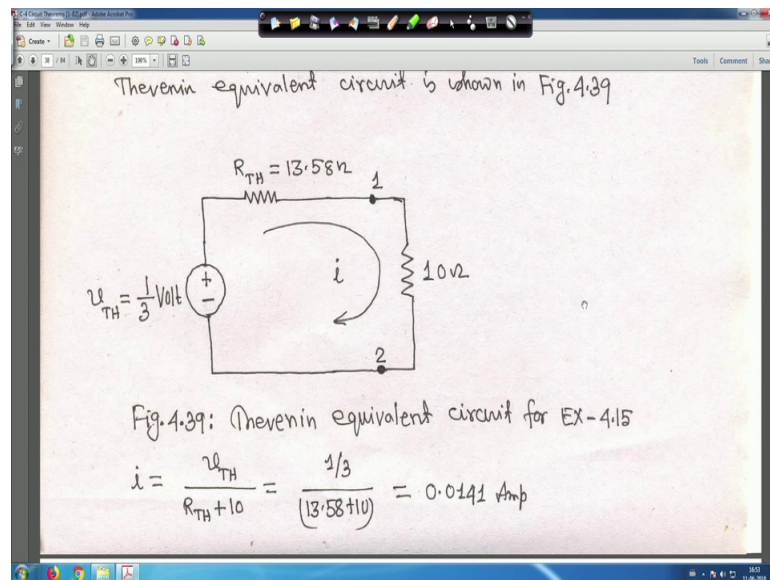 C-4 Circuit Theorems [1-82].pdf - Adobe Acrobat Pro
File Edit View Window Help
Create
38 / 84
Tools Comment
Thevenin equivalent circuit is shown in Fig. 4.39
R_TH = 13.58Ω
1
i
10Ω
v_TH = 1/3 Volt
+
−
2
Fig. 4.39: Thevenin equivalent circuit for EX-4.15
i = v_TH / (R_TH + 10) = (1/3) / (13.58+10) = 0.0141 Amp
16:53